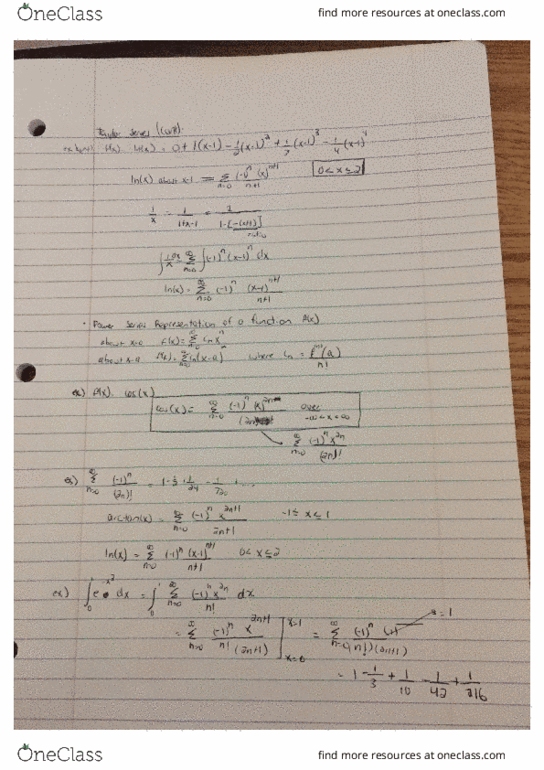 OneClass
find more resources at oneclass.com
Taylor Series (cont).
f(x) ln(x) = 0 + 1(x-1) - 1/2(x-1)^2 + 1/3(x-1)^3 - 1/4(x-1)^4
ln(x) about x=1 = ∑ n=0 (-1)^n (x)^n+1 / n+1   0<x≤2
1/x = 1/1+x-1 = 1/1-[-(x-1)]
ratio
∫ 1/x dx = ∑ n=0 ∞ ∫(-1)^n (x-1)^n dx
ln(x) = ∑ n=0 ∞ (-1)^n (x-1)^n+1 / n+1
• Power Series Representation of a function f(x)
about x=0 f(x) = ∑ Cn x^n
about x=a f(x) = ∑ Cn(x-a)^n where Cn = f^(n)(a) / n!
ex) f(x) cos(x)
cos(x) = ∑ n=0 ∞ (-1)^n (x)^2n / (2n)! over -∞<x<∞
∑ n=0 ∞ (-1)^n x^2n / (2n)!
ex) ∑ n=0 ∞ (-1)^n / (2n)! = 1 - 1/2 + 1/24 - 1/720 + ...
arctan(x) = ∑ n=0 ∞ (-1)^n x^2n+1 / 2n+1   -1≤x≤1
ln(x) = ∑ n=0 ∞ (-1)^n (x-1)^n+1 / n+1   0<x≤2
ex) ∫ 0 1 e^-x^2 dx = ∫ 0 1 ∑ n=0 ∞ (-1)^n x^2n / n! dx
= ∑ n=0 ∞ (-1)^n x^2n+1 / n! (2n+1) ] x=1 x=0 = ∑ n=0 ∞ (-1)^n (1) / (n!)(2n+1) = 1
= 1 - 1/3 + 1/10 - 1/42 + 1/216
OneClass
find more resources at oneclass.com